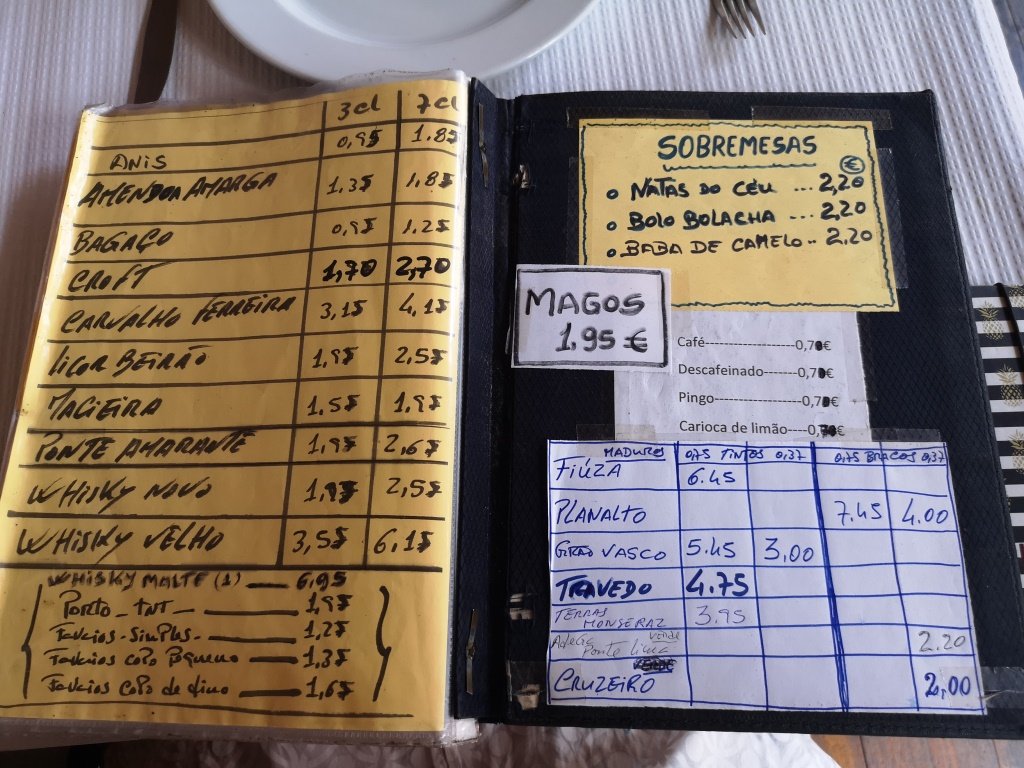 3cl 7cl
ANIS 0,95 1.85
AMENDOA AMARGA 1.35 1.85
BAGAÇO 0,95 1.25
CROFT 1,70 2,70
CARVALHO FERREIRA 3,15 4,15
LICOR BEIRÃO 1,95 2,55
MACIEIRA 1.55 1,95
PONTE AMARANTE 1,95 2,65
WHISKY NOVO 1,95 2,55
WHISKY VELHO 3,55 6,15
WHISKY MALTE (1) — 6,95
PORTO - TNT — 1,95
- SimPles - 1,25
COPO PEQUENO — 1,35
COPO de — 1,65
SOBREMESAS
€
o NATAS DO CÉU ... 2,20
o BOLO BOLACHA ... 2,20
o BABA DE CAMELO .. 2,20
MAGOS
1.95 €
Café--------------------0,70€
Descafeinado-------0,70€
Pingo------------------0,70€
Carioca de limão----0,70€
MADUROS 0,75 TINTOS 0,37 0,75 BRACOS 0,37
FIÚZA 6.45
PLANALTO 7.45 4.00
GRÃO VASCO 5.45 3,00
TRAVEDO 4.75
TERRAS MONSERAZ 3.95
Adega Ponte Lima VERDE 2.20
CRUZEIRO VERDE 2,00